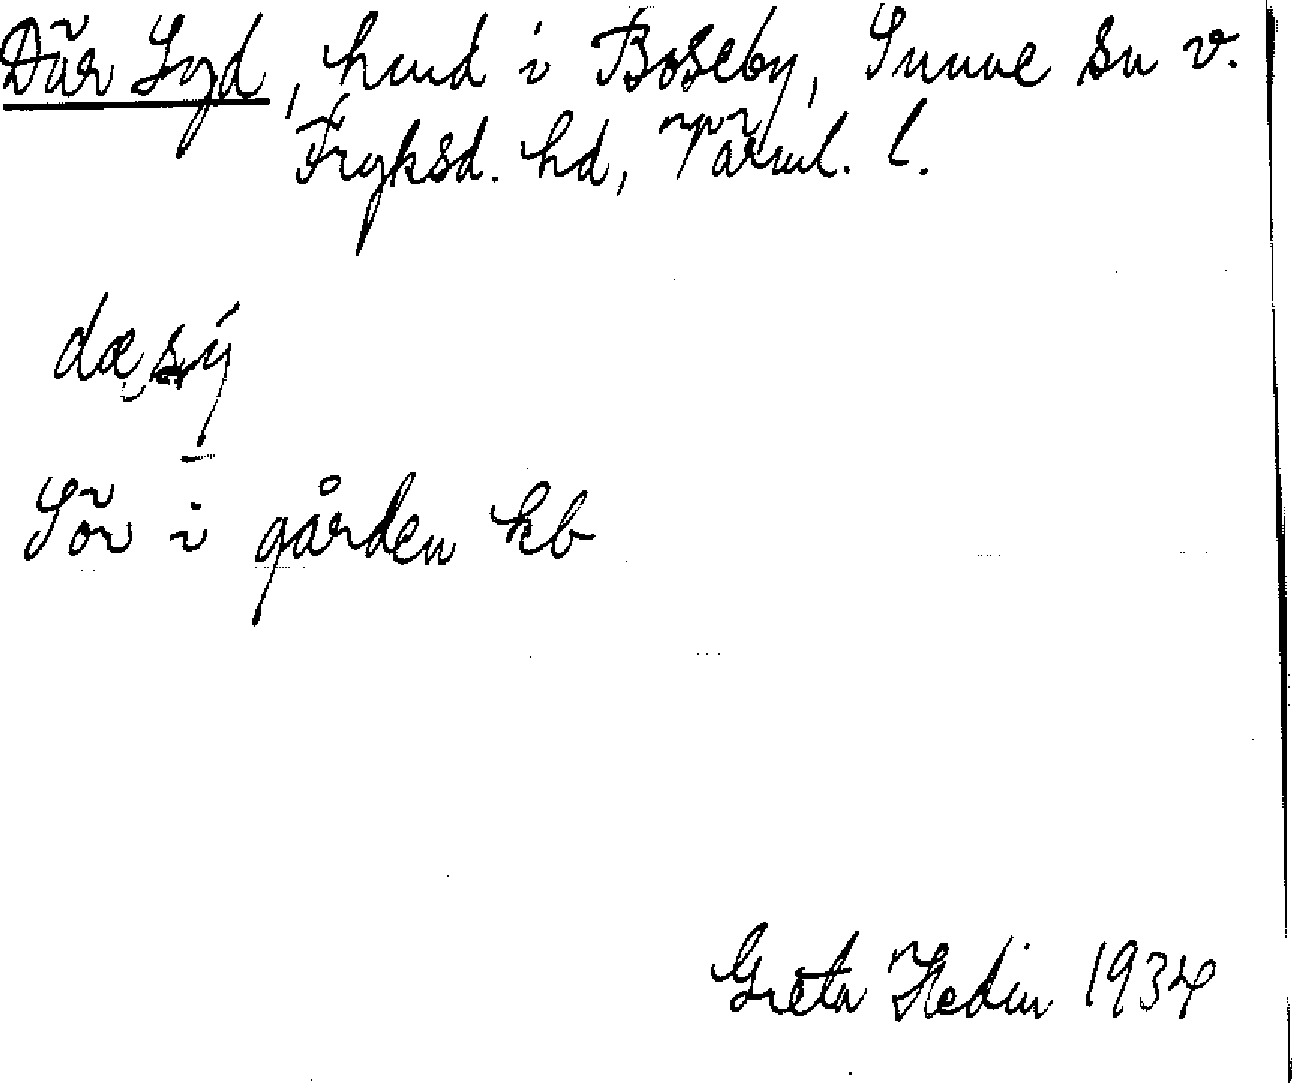 Där Syd, hmd i Boseby, Sunne sn v.
Fryksd. hd, Värml. l.
dæ sý
Sör i gården kb
Greta Hedin 1934